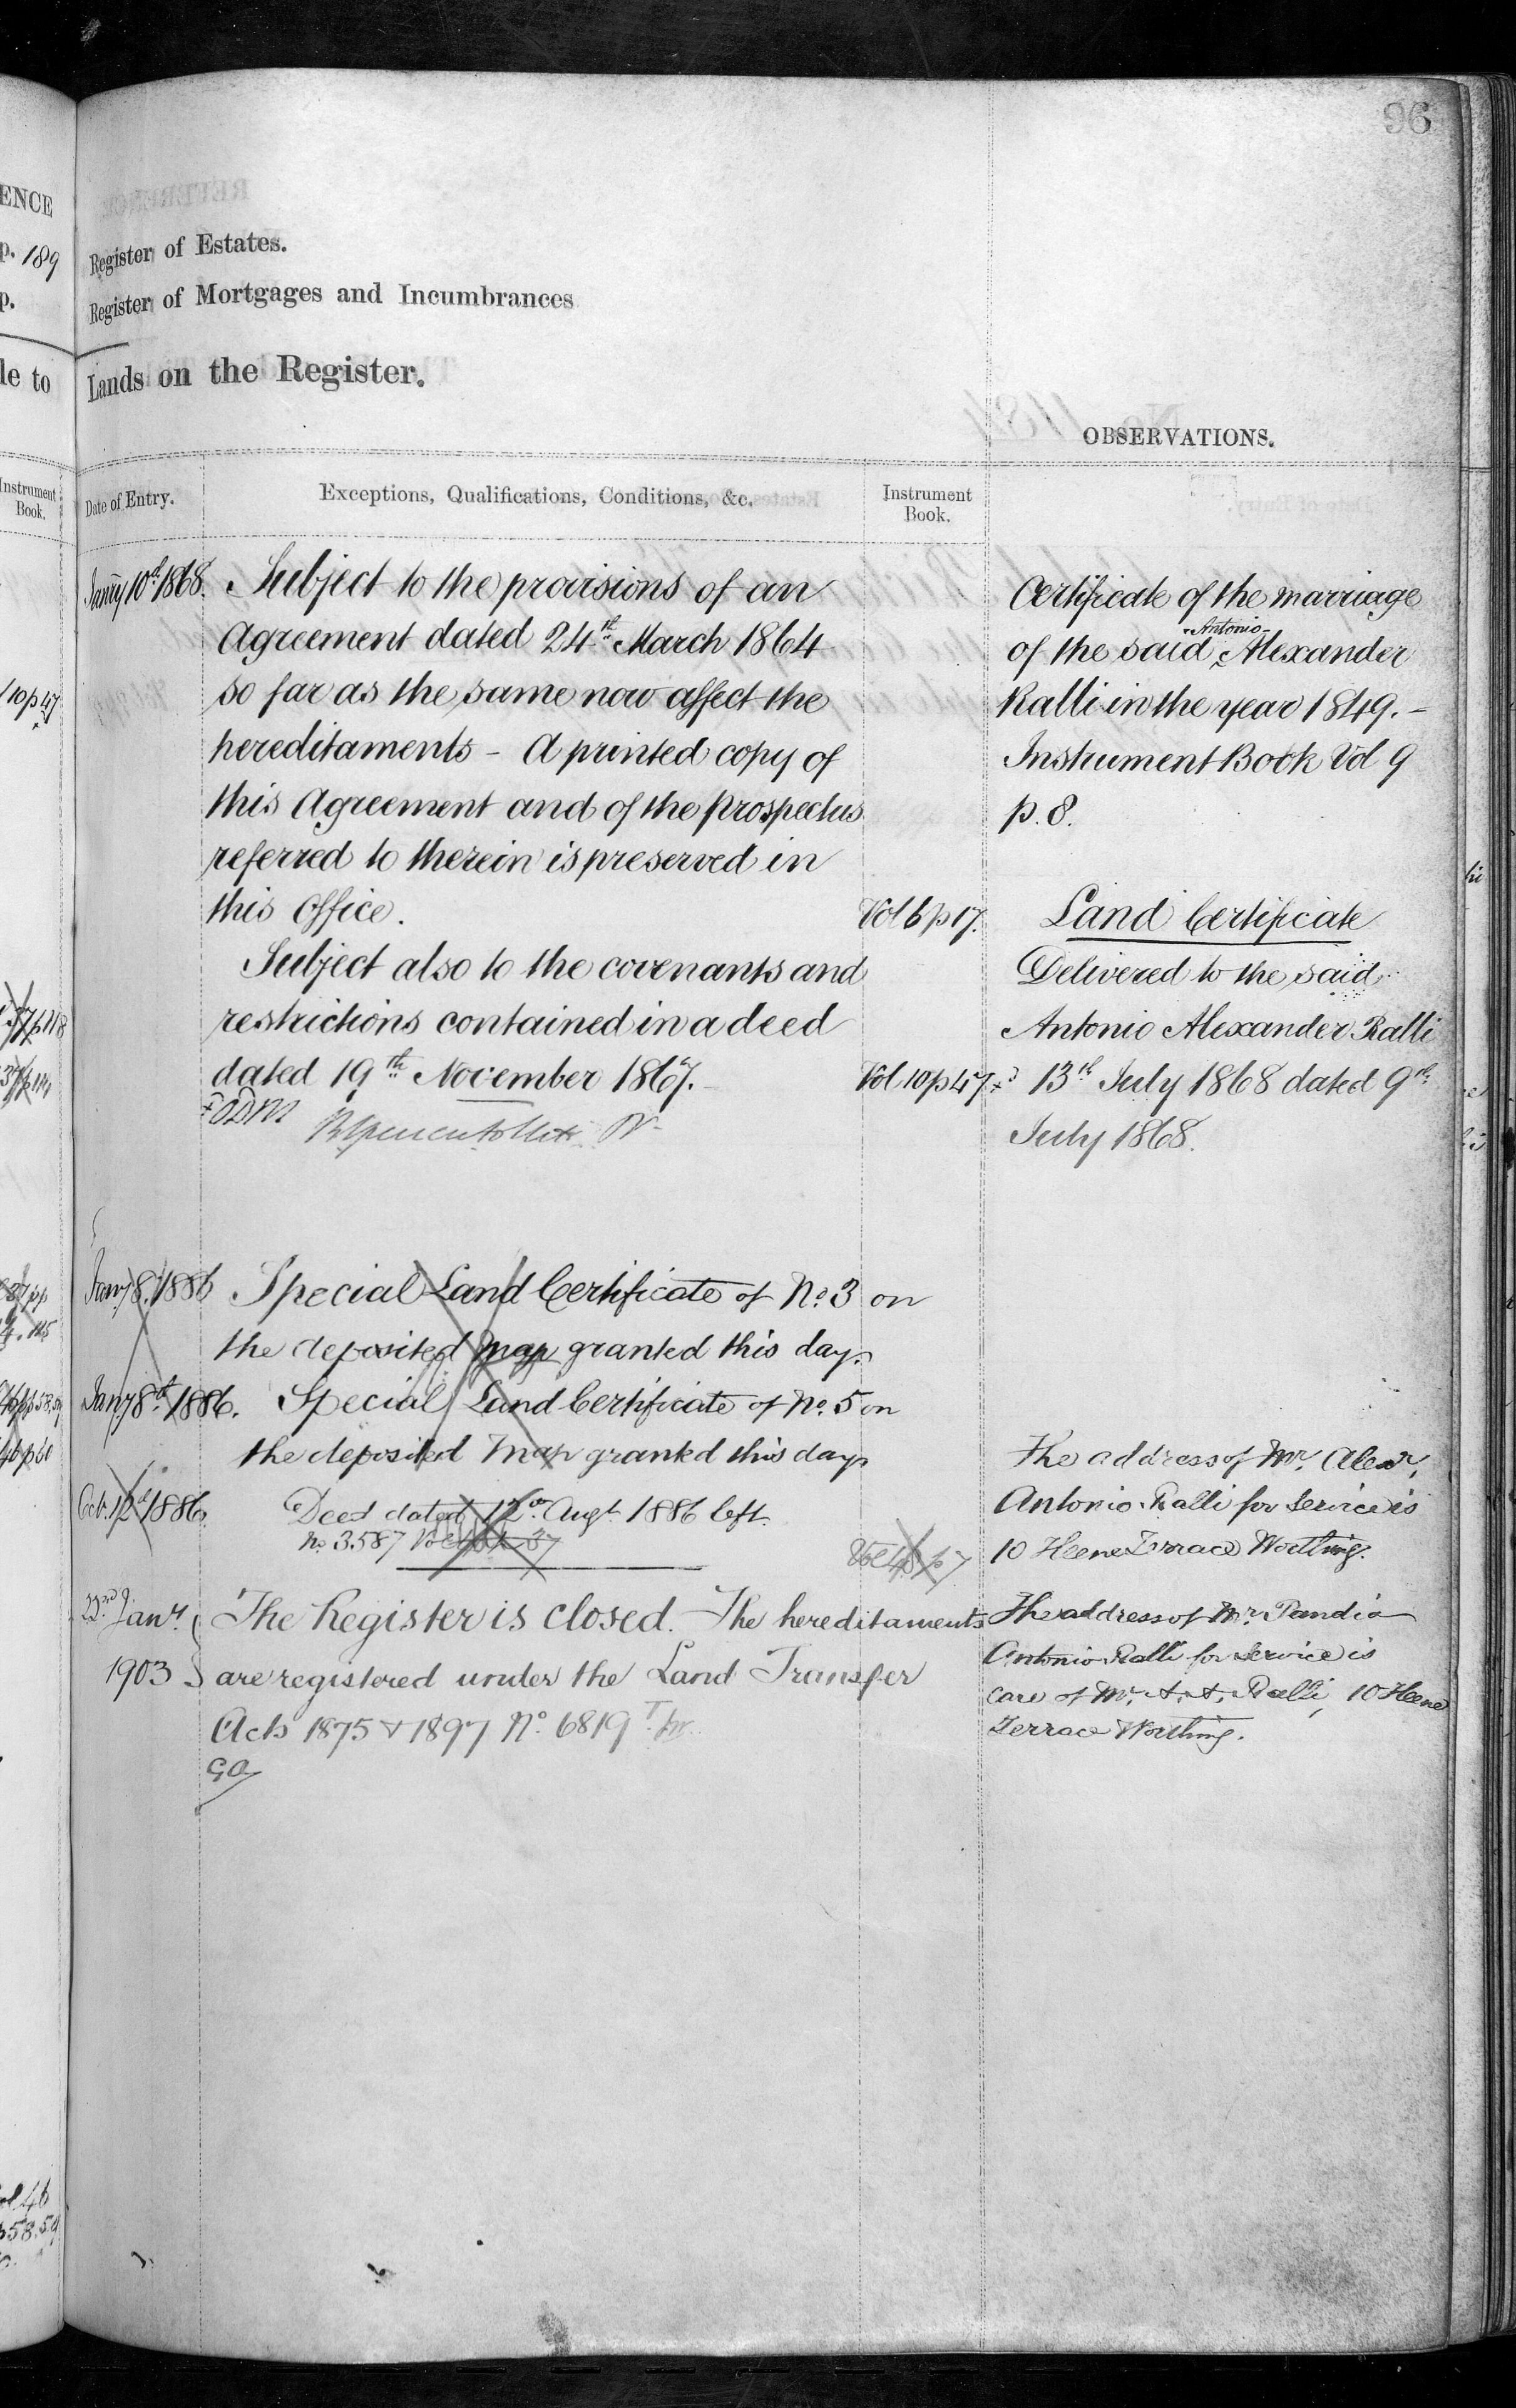 96
ENCE
p. 189
p.
le to
Instrument Book.
10 p 47
Register of Estates.
Register of Mortgages and Incumbrances
Lands on the Register.
OBSERVATIONS.
Date of Entry.
Exceptions, Qualifications, Conditions, &c.
Instrument
Book.
Janry 10th 1868. Subject to the provisions of an
Agreement dated 24th March 1864
so far as the same now affect the
hereditaments - A printed copy of
this Agreement and of the prospectus
referred to therein is preserved in
this Office. Vol 6 p 17.
Subject also to the covenants and
restrictions contained in a deed
dated 19th November 1867. Vol 10 p 47
Jany 8. 1886 Special Land Certificate of No. 3 on
the deposited map granted this day.
Jany 8th 1886. Special Land Certificate of No. 5 on
the deposited map granted this day
Oct. 12th 1886. Deed dated 12th Augt. 1886 left.
No 3587
22nd Jany. The Register is closed. The hereditaments
1903 are registered under the Land Transfer
Acts 1875 & 1897 No. 6819
Certificate of the marriage
of the said Antonio Alexander
Ralli in the year 1849. -
Instrument Book Vol 9
p. 8.
Land Certificate
Delivered to the said
Antonio Alexander Ralli
13th July 1868 dated 9th
July 1868.
The address of Mr. Alexr.
Antonio Ralli for service is
10 Heene Terrace Worthing.
The address of Mr. Pandia
Antonio Ralli for service is
care of Mr. A. A. Ralli, 10 Heene
Terrace Worthing.